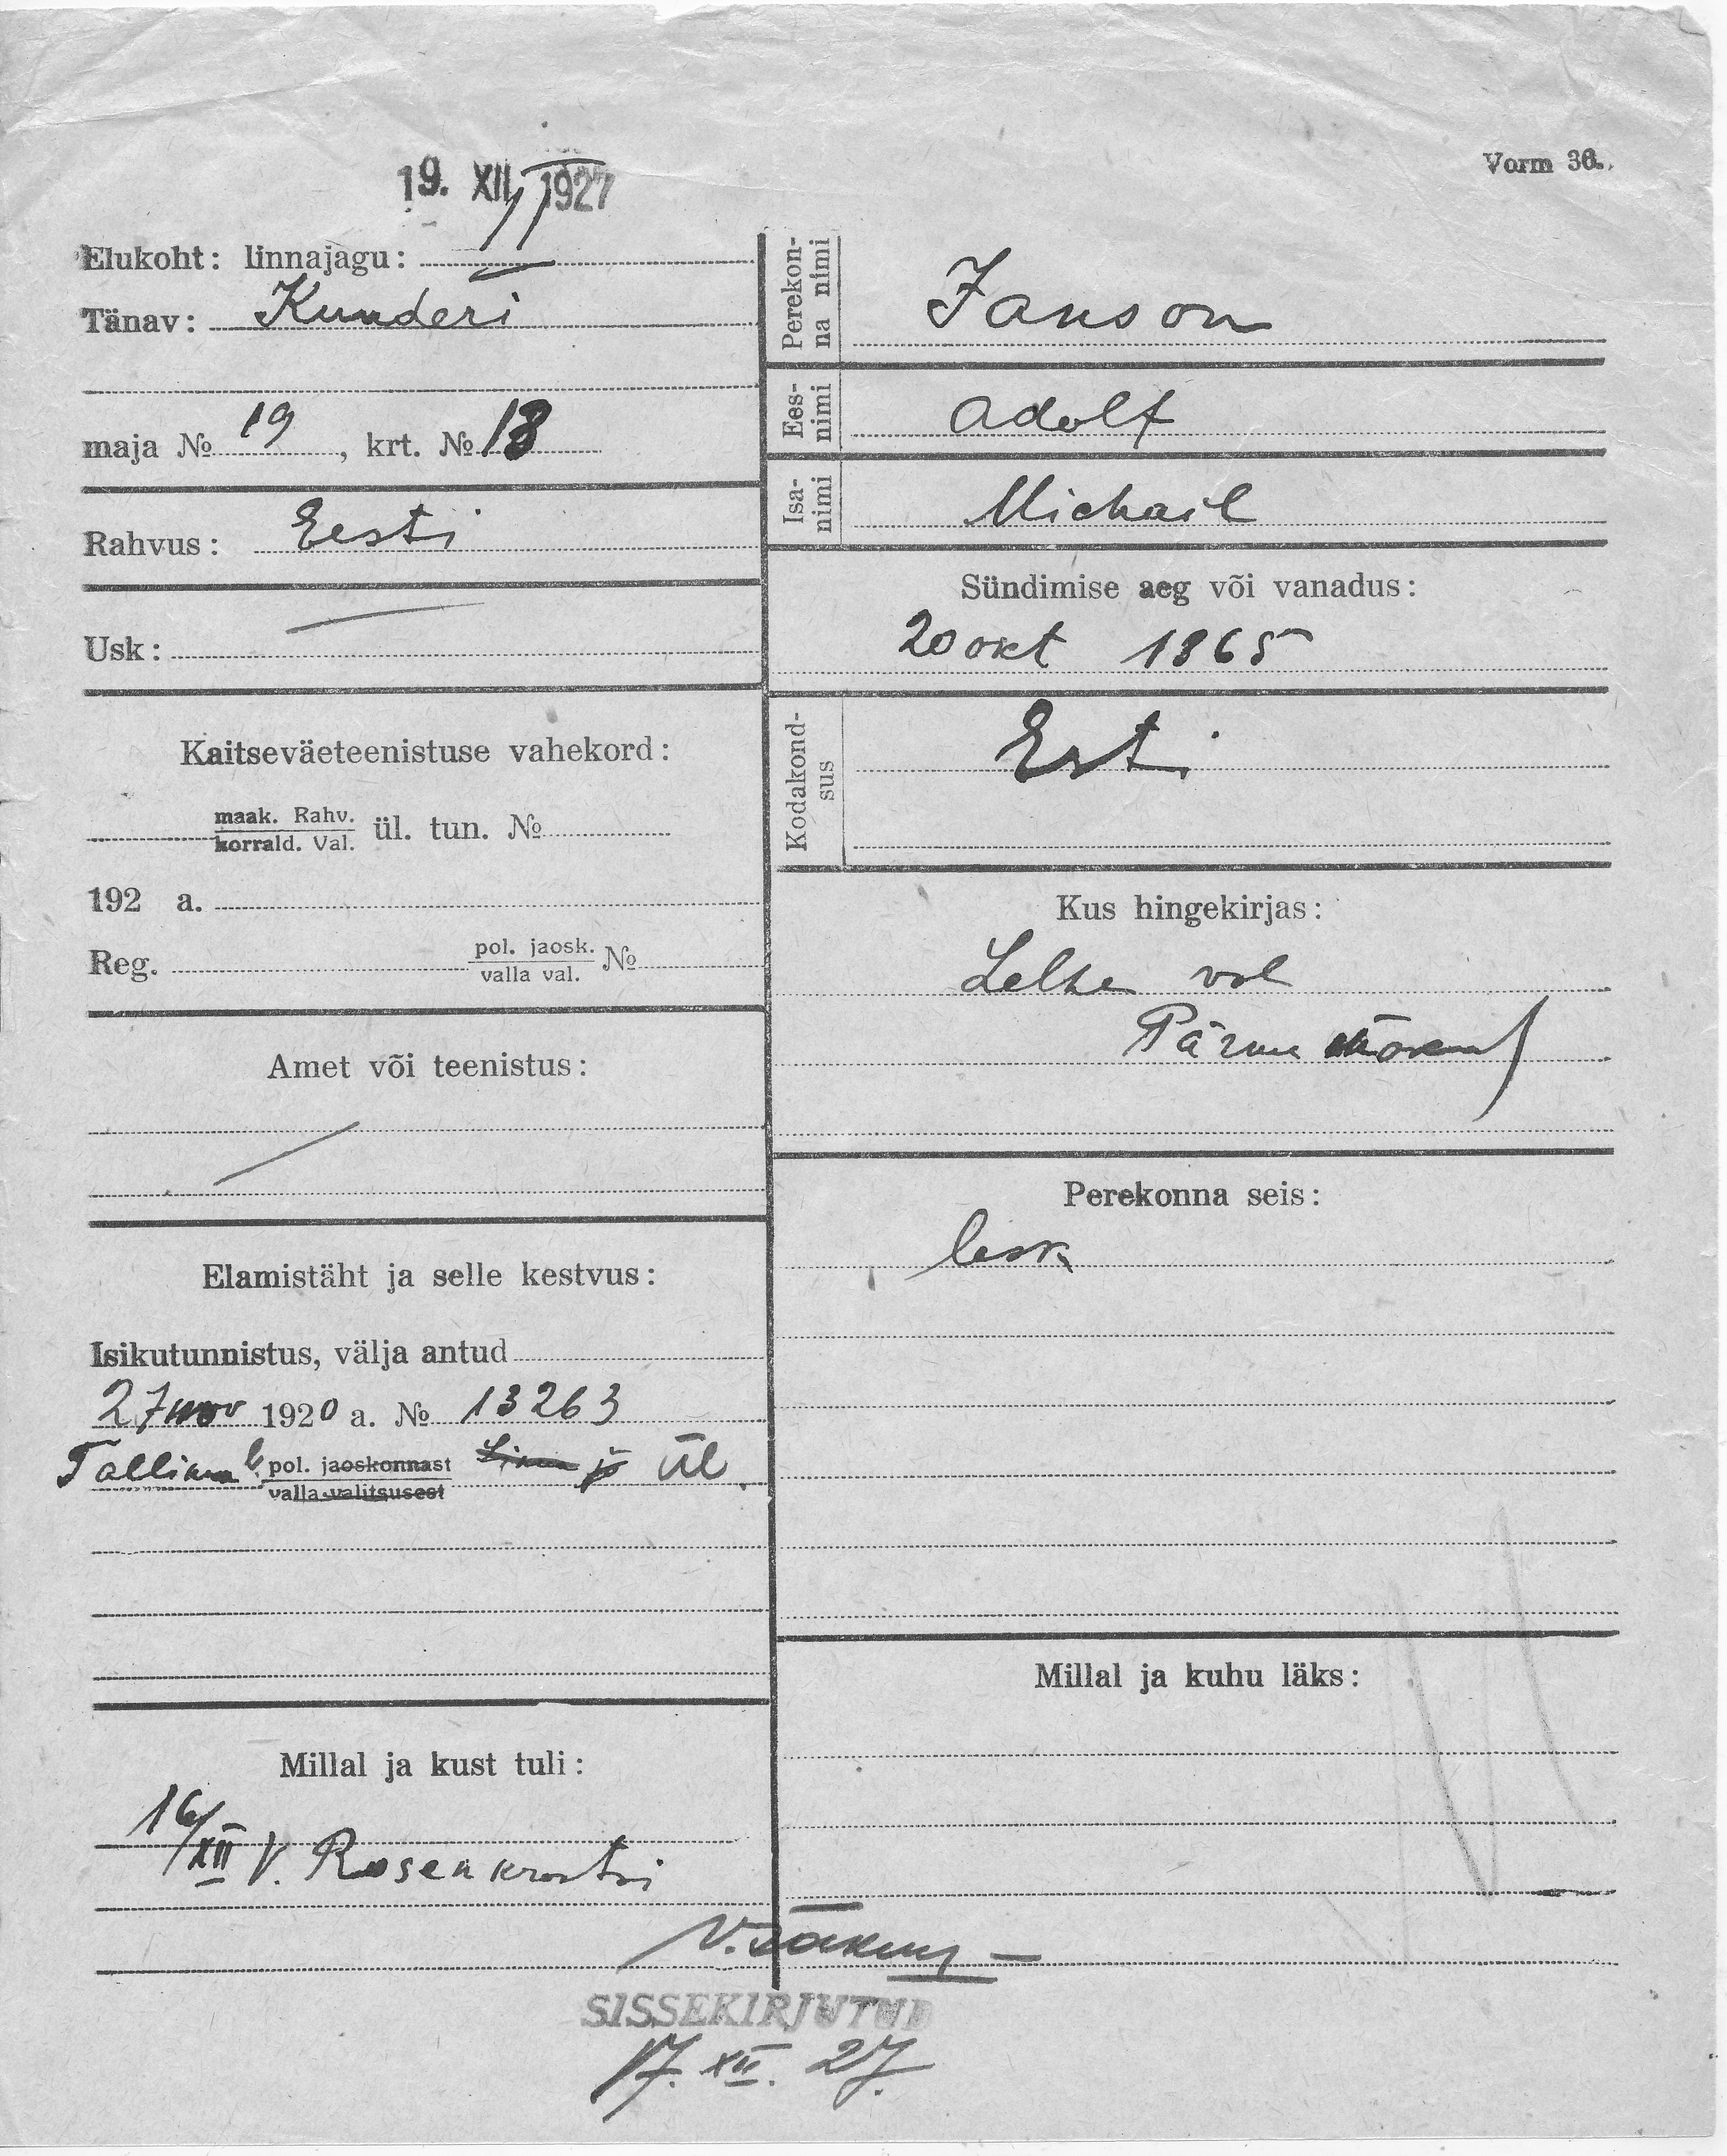 19. XII 1927
Vorm 36.
Elukoht: linnajagu: II
Tänav: Kunderi
maja № 19, krt. № 13
Rahvus: Eesti
Usk: —
Kaitseväeteenistuse vahekord:
maak. Rahv.
korrald. Val. ül. tun. №
192 a.
Reg. pol. jaosk.
valla val. №
Amet või teenistus:
Elamistäht ja selle kestvus:
Isikutunnistus, välja antud
27 nov 1920 a. № 13263
Tallinna l. pol. jaoskonnast Linna j ÜL
valla-valitsusest
Millal ja kust tuli:
16/XII V. Rosenkrantsi
Perekonna nimi
Janson
Eesnimi
Adolf
Isanimi
Michail
Sündimise aeg või vanadus:
20 okt 1865
Kodakondsus
Esti
Kus hingekirjas:
Lelle val
Pärnu
Perekonna seis:
lesk
Millal ja kuhu läks:
SISSEKIRJUTUD
17. XII. 27.